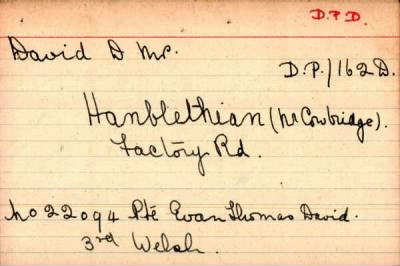 D.P.D.
David D Mr.
D.P./162D.
Hanblethian (Nr Cowbridge).
Factory Rd.
No 22094 Pte Evan Thomas David.
3rd Welsh.